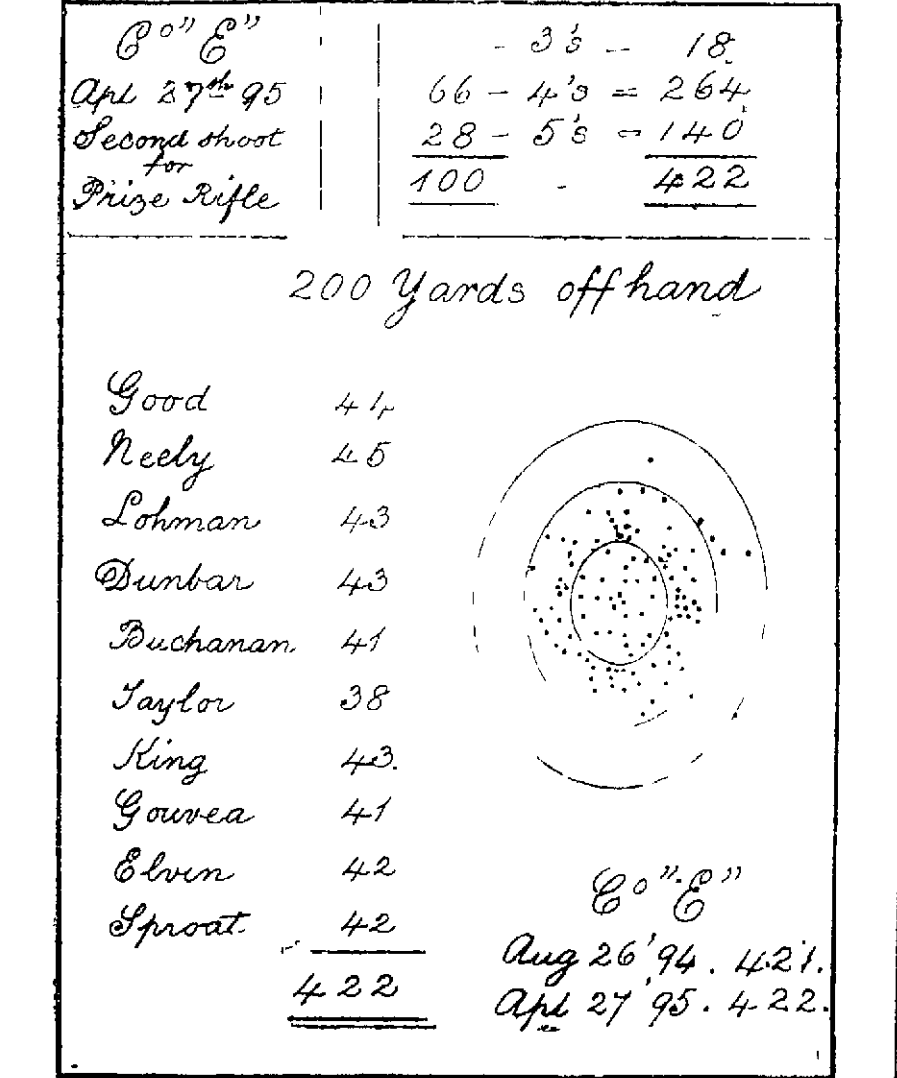 Co "E"
Apl 27th 95
Second shoot
for
Prize Rifle
- 3's -- 18.
66 - 4's = 264
28 - 5's = 140
100 - 422
200 Yards off hand
Good 44
Neely 45
Lohman 43
Dunbar 43
Buchanan. 41
Taylor 38
King 43.
Gouvea 41
Elvin 42
Sproat. 42
422
Co "E"
Aug 26 '94. 421.
Apl 27 '95. 422.